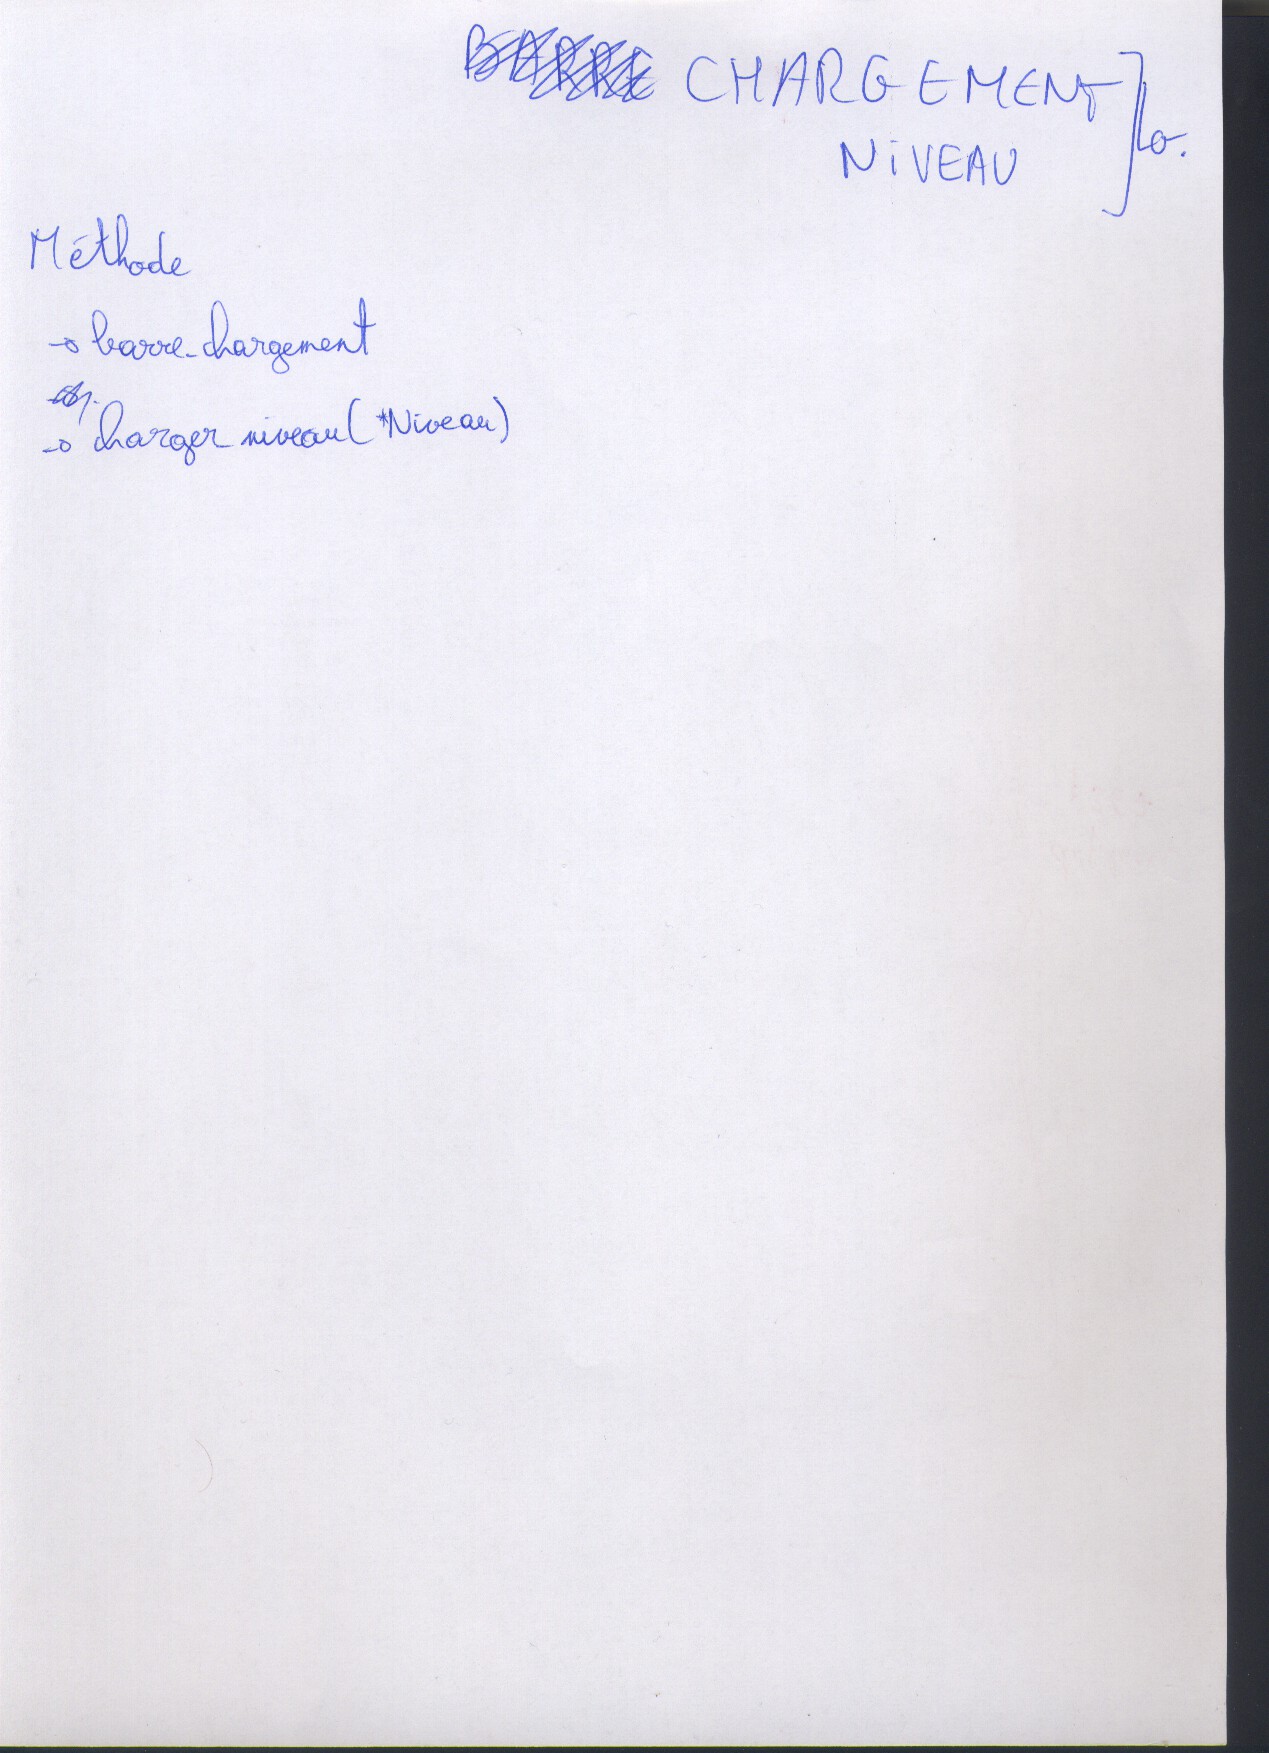 BARRE CHARGEMENT
NiVEAU
Méthode
→ barre_chargement
→ charger_niveau(*Niveau)